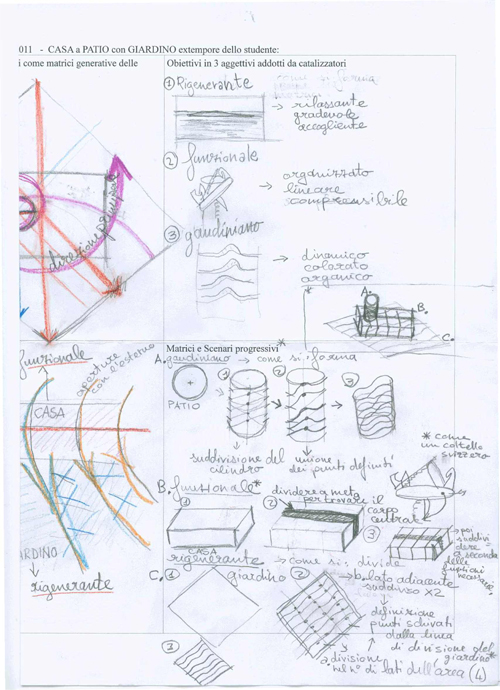 011 - CASA a PATIO con GIARDINO extempore dello studente:
i come matrici generative delle
Obiettivi in 3 aggettivi addotti da catalizzatori
① Rigenerante
→ rilassante
gradevole
accogliente
② funzionale
→ organizzato
lineare
comprensibile
③ gaudiniano
→ dinamico
colorato
organico
direzione principale
A.
B.
C.
Matrici e Scenari progressivi*
A. gaudiniano → come si forma
PATIO
① ② ③
suddivisione del cilindro
unione dei punti definiti
* come un coltello svizzero
B. funzionale*
① ② dividere a metà per trovare il corpo centrale
③ → poi suddividere a seconda delle funzioni necessarie.
CASA
rigenerante → come si divide
C. ① giardino ② → b. lato adiacente suddiviso x2
definizione punti
dalla linea di divisione del giardino*
③
a. divisione nel n° di lati dell'area (4)
funzionale
aperture con l'esterno
CASA
IARDINO
rigenerante